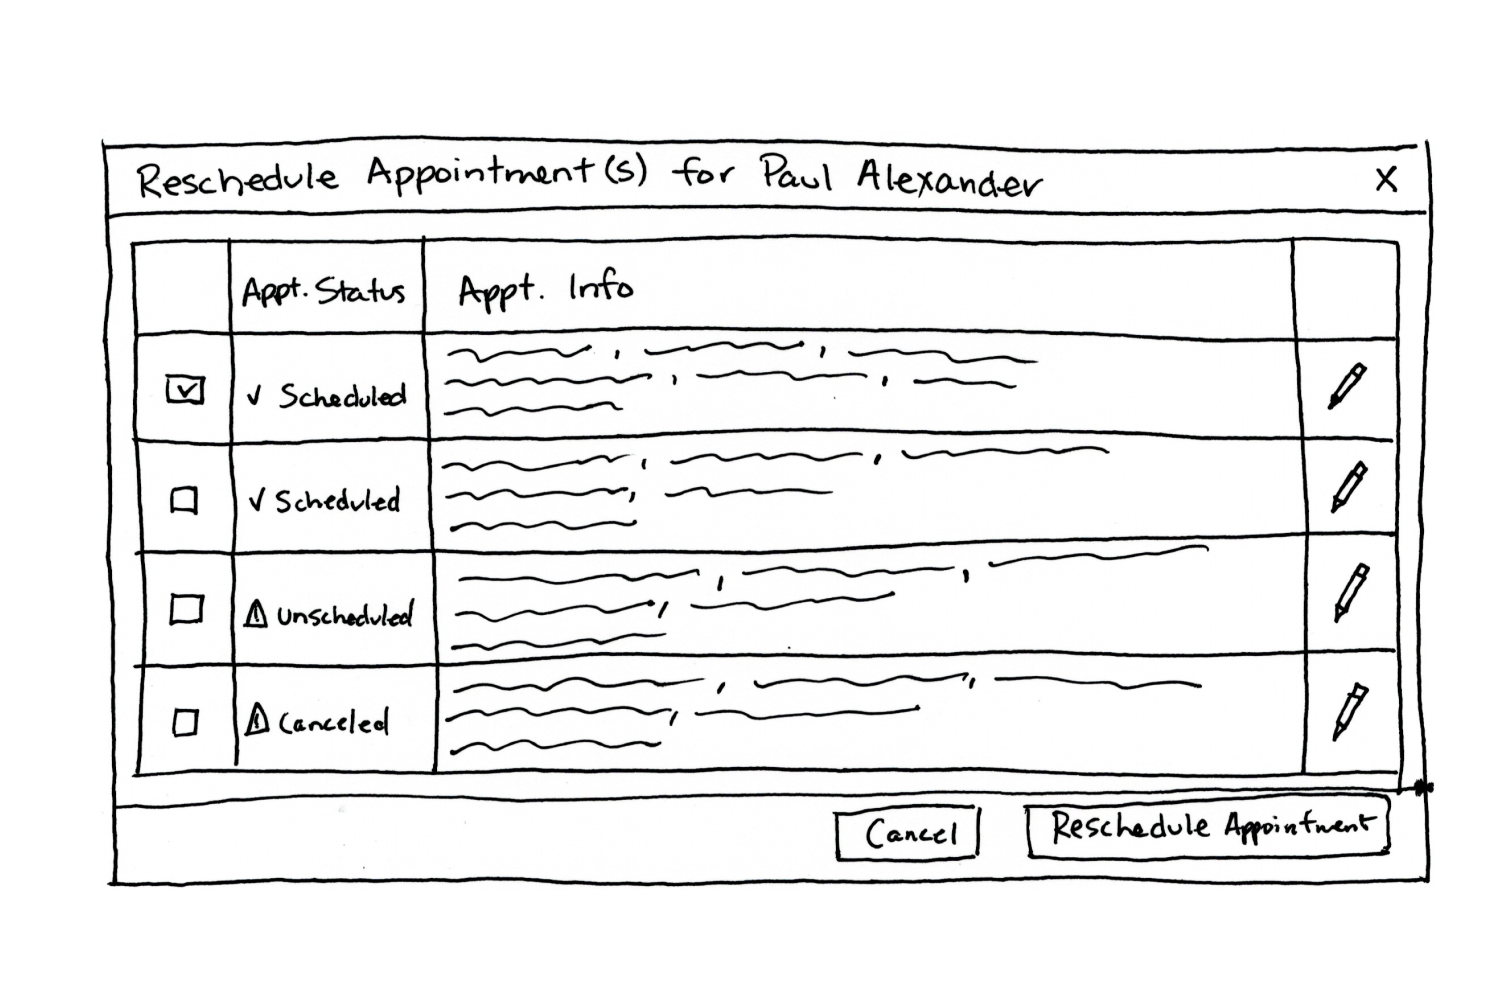 Reschedule Appointment(s) for Paul Alexander X
Appt. Status Appt. Info
✓ Scheduled
✓ Scheduled
Unscheduled
Canceled
Cancel Reschedule Appointment